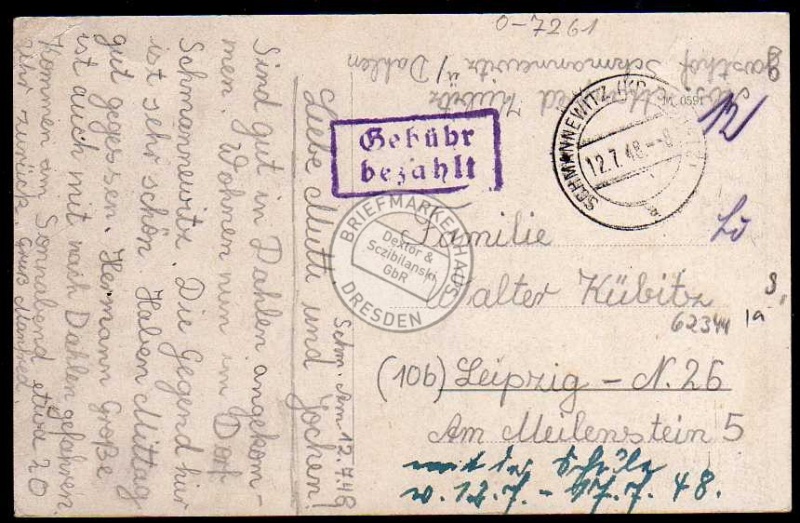 O-7261
Manfred Kübitz
Schmannewitz ü/Dahlen
Gasthof
Gebühr
bezahlt
SCHMANNEWITZ
12.7.48.--8
12
Lö
BRIEFMARKENHAUS
Dextor &
Sczibilanski
GbR
DRESDEN
Familie
Walter Kübitz
62344
1a
(10b) Leipzig – N. 26
Am Meilenstein 5
mit der Schule
v. 12.7. – 17.7. 48.
Schm. Am 12.7.48
Liebe Mutti und Jochem!
Sind gut in Dahlen angekom-
men. Wohnen nun im Dorf
Schmannewitz. Die Gegend hier
ist sehr schön. Haben Mittag
gut gegessen. Hermann Große
ist auch mit nach Dahlen gefahren.
Kommen am Sonnabend etwa 20
Uhr zurück. Gruß Manfred.